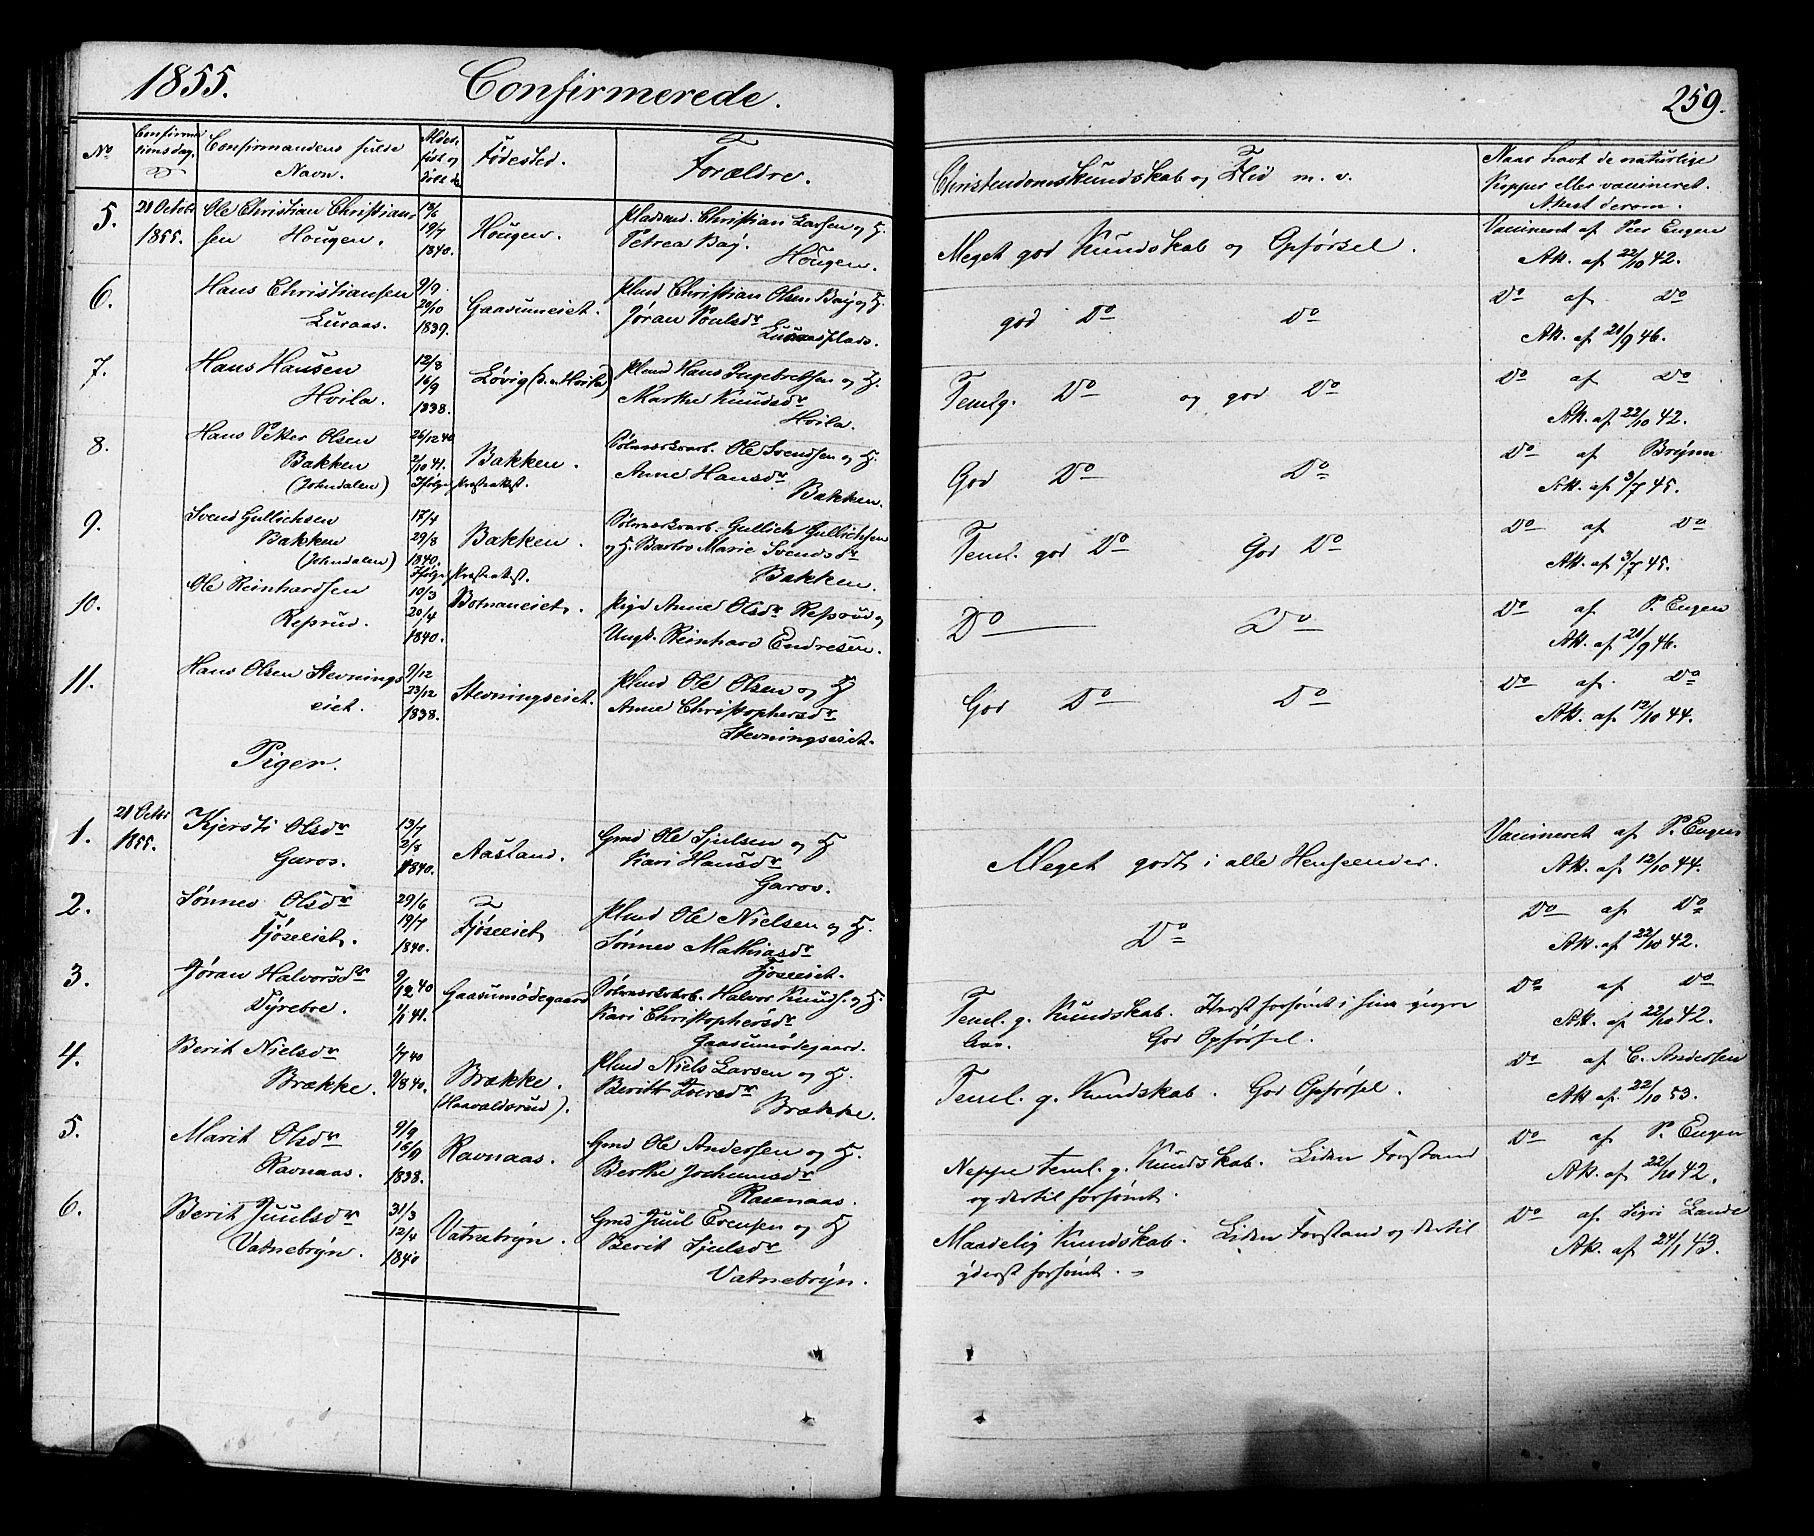 1855. Confirmerede. 259.
No
Confirma
tionsdag.
Confirmandens fulde
Navn.
Alder.
født og
døbt da
Fødested.
Forældre.
Christendomskundskab og Flid m. v.
Naar havt de naturlige
Kopper eller vaccineret.
Attest derom.
5. 21 Octobr
1855.
Ole Christian Christian-
sen Hougen.
13/6
19/7
1840.
Hougen.
Pladsmd. Christian Larsen og H.
Petrea Baÿ.
Hougen.
Meget god Kundskab og Opførsel.
Vaccineret af Peer Eugen
Att. af 22/10 42.
6.
Hans Christiansen
Luraas.
9/9.
20/10
1839.
Gaasuneiet.
Plmd Christian Olsen Baÿ og H.
Jøran Poulsdr
Luraasplads.
god Do Do
Do af Do
Att. af 21/9 46.
7.
Hans Hansen
Hvila.
12/8
16/9
1838.
Løvig (p. Hvila)
Plmd Hans Ingebretsen og H.
Marthe Knudsdr
Hvila.
Temlg. Do og god Do
Do af Do
Att. af 22/10 42.
8.
Hans Petter Olsen
Bakken
(Johndalen)
26/12 40
2/10 41.
Ifølge Præsteattest.
Bakken.
Sølvværksarb. Ole Svendsen og H.
Anne Hansdr
Bakken.
God Do Do
Do af Brÿnn
Att. af 3/7 45.
9.
Svend Gullichsen
Bakken
(Johndalen)
17/4
29/8
1840.
Ifølge Præsteattest.
Bakken.
Sølvværksarb. Gullich Gullichsen
og H. Barbro Marie Svendsdr
Bakken.
Teml. god Do God Do
Do af Do
Att. af 3/7 45.
10.
Ole Reinhardsen
Repruud.
10/3
20/4
1840.
Botnaneiet.
Pige Anne Olsdr Repruud og
Ungk. Reinhard Endresen.
Do Do
Do af P. Eugen
Att. af 21/9 46.
11.
Hans Olsen Stevnings
eiet.
9/12
23/12
1838.
Stevningseiet.
Plmd Ole Olsen og H
Anne Christophersdr
Stevningseiet.
God Do Do
Do af. Do
Att. af 12/10 44.
Piger.
1. 21 Octbr
1855.
Kjersti Olsdr
Garos.
13/7
2/8
1840.
Aasland.
Gmd Ole Sjulsen og H
Kari Hansdr
Garos.
Meget godt i alle Henseender.
Vaccineret af P. Eugen
Att. af 12/10 44.
2.
Sønnev Olsdr
Fjøseeiet.
29/6
19/7
1840.
Fjøseeiet
Plmd Ole Nielsen og H.
Sønnev Mathiasdr
Fjøseeiet.
Do
Do af Do
Att. af 22/10 42.
3.
Jøran Halvorsdr
Dÿreboe.
9/12 40
1/1 41.
Gaasumødegaard
Sølvværksarb. Halvor Knuds. og H.
Kari Christophersdr
Gaasumødegaard.
Teml. g. Kundskab. forsømt i sin ÿngre
God Opførsel.
Do af Do
Att. af 22/10 42.
4.
Berit Nielsdr
Brække.
1/7 40
9/8 40.
Brække.
(Haavaldsrud).
Plmd Niels Larsen og H.
Beritte Iversdr
Brække.
Teml. g. Kundskab. God Opførsel.
Do af C. Andersen
Att af. 22/10 53.
5.
Marit Olsdr
Ravnaas.
9/9
16/9
1838.
Ravnaas.
Gmd Ole Andersen og H.
Berthe Jochumsdr
Ravnaas.
Neppe teml. g. Kundskab. Liden Forstand
og dertil forsømt.
Do af P. Eugen
Att. af 22/10 42.
6.
Berit Juulsdr
Vatnebrÿn.
31/3
12/4
1840
Vatnebrÿn.
Gmd Juul Evensen og H
Berit Sjulsdr
Vatnebrÿn.
Maadelig Kundskab. Liden Forstand og dertil
ÿderst forsømt.
Do af Sigri Lande
Att. af 24/1 43.